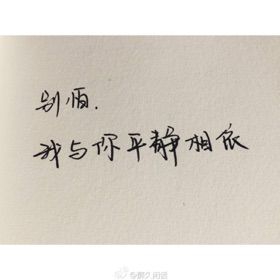 别怕.
我与你平静相依